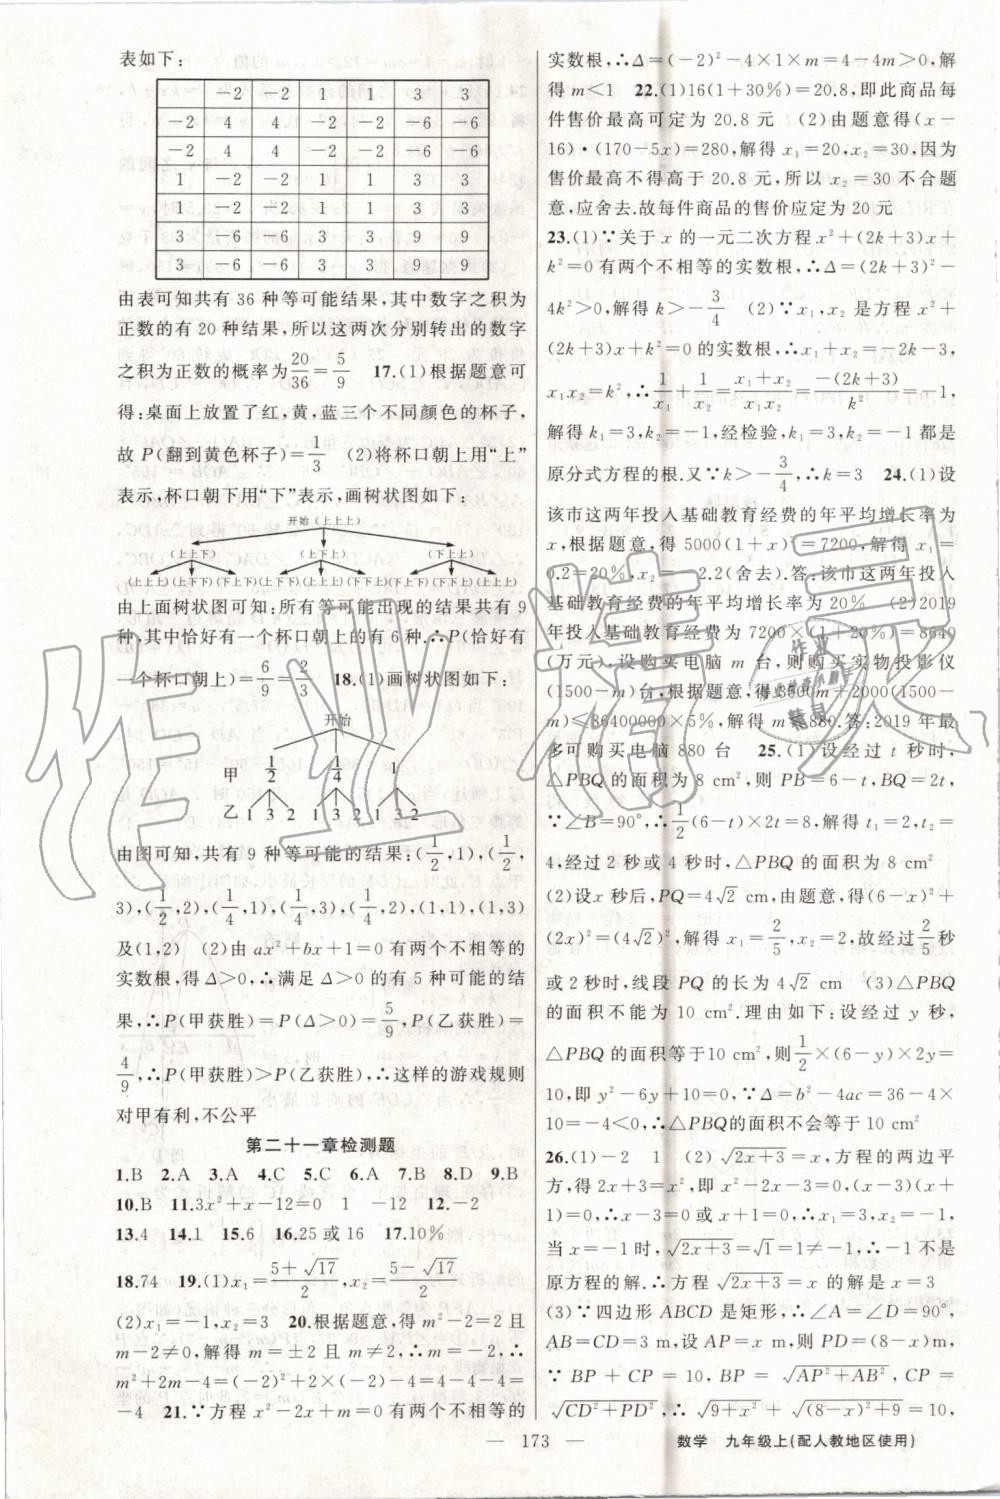 表如下:
-2 -2 1 1 3 3
-2 4 4 -2 -2 -6 -6
-2 4 4 -2 -2 -6 -6
1 -2 -2 1 1 3 3
1 -2 -2 1 1 3 3
3 -6 -6 3 3 9 9
3 -6 -6 3 3 9 9
由表可知共有 36 种等可能结果,其中数字之积为
正数的有 20 种结果,所以这两次分别转出的数字
之积为正数的概率为20/36=5/9 17.(1)根据题意可
得:桌面上放置了红,黄,蓝三个不同颜色的杯子,
故 P(翻到黄色杯子)=1/3 (2)将杯口朝上用“上”
表示,杯口朝下用“下”表示,画树状图如下:
开始(上上上)
(上上下) (上下上) (下上上)
(上上上)(上下下)(下上下)(上下下)(上上上)(下下上)(下上下)(下下上)(上上上)
由上面树状图可知:所有等可能出现的结果共有 9
种,其中恰好有一个杯口朝上的有 6 种,∴P(恰好有
一个杯口朝上)=6/9=2/3 18.(1)画树状图如下:
开始
甲 1/2 1/4 1
乙 1 3 2 1 3 2 1 3 2
由图可知,共有 9 种等可能的结果:(1/2,1),(1/2,
3),(1/2,2),(1/4,1),(1/4,3),(1/4,2),(1,1),(1,3)
及(1,2) (2)由 ax²+bx+1=0 有两个不相等的
实数根,得 Δ>0,∴满足 Δ>0 的有 5 种可能的结
果,∴P(甲获胜)=P(Δ>0)=5/9,P(乙获胜)=
4/9,∴P(甲获胜)>P(乙获胜),∴这样的游戏规则
对甲有利,不公平
第二十一章检测题
1.B 2.A 3.A 4.C 5.C 6.A 7.B 8.D 9.B
10.B 11.3x²+x-12=0 1 -12 12.-2
13.4 14.1 15.6 16.25 或 16 17.10%
18.74 19.(1)x₁=(5+√17)/2,x₂=(5-√17)/2
(2)x₁=-1,x₂=3 20.根据题意,得 m²-2=2 且
m-2≠0,解得 m=±2 且 m≠2,∴m=-2,∴
m²+2m-4=(-2)²+2×(-2)-4=4-4-4=
-4 21.∵方程 x²-2x+m=0 有两个不相等的
实数根,∴Δ=(-2)²-4×1×m=4-4m>0,解
得 m<1 22.(1)16(1+30%)=20.8,即此商品每
件售价最高可定为 20.8 元 (2)由题意得(x-
16)·(170-5x)=280,解得 x₁=20,x₂=30,因为
售价最高不得高于 20.8 元,所以 x₂=30 不合题
意,应舍去.故每件商品的售价应定为 20 元
23.(1)∵关于 x 的一元二次方程 x²+(2k+3)x+
k²=0 有两个不相等的实数根,∴Δ=(2k+3)²-
4k²>0,解得 k>-3/4 (2)∵x₁,x₂ 是方程 x²+
(2k+3)x+k²=0 的实数根,∴x₁+x₂=-2k-3,
x₁x₂=k²,∴1/x₁+1/x₂=(x₁+x₂)/(x₁x₂)=-(2k+3)/k²=-1,
解得 k₁=3,k₂=-1,经检验,k₁=3,k₂=-1 都是
原分式方程的根.又∵k>-3/4,∴k=3 24.(1)设
该市这两年投入基础教育经费的年平均增长率为
x,根据题意,得 5000(1+x)²=7200,解得 x₁=
0.2=20%,x₂=-2.2(舍去).答:该市这两年投入
基础教育经费的年平均增长率为 20% (2)2019
年投入基础教育经费为 7200×(1+20%)=8640
(万元),设购买电脑 m 台,则购买实物投影仪
(1500-m)台,根据题意,得 3500m+2000(1500-
m)≤86400000×5%,解得 m≤880.答:2019 年最
多可购买电脑 880 台 25.(1)设经过 t 秒时,
△PBQ 的面积为 8 cm²,则 PB=6-t,BQ=2t,
∵∠B=90°,∴1/2(6-t)×2t=8,解得 t₁=2,t₂=
4,经过 2 秒或 4 秒时,△PBQ 的面积为 8 cm²
(2)设 x 秒后,PQ=4√2 cm,由题意,得(6-x)²+
(2x)²=(4√2)²,解得 x₁=2/5,x₂=2,故经过2/5秒
或 2 秒时,线段 PQ 的长为 4√2 cm (3)△PBQ
的面积不能为 10 cm².理由如下:设经过 y 秒,
△PBQ 的面积等于10 cm²,则1/2×(6-y)×2y=
10,即 y²-6y+10=0,∵Δ=b²-4ac=36-4×
10=-4<0,∴△PBQ 的面积不会等于 10 cm²
26.(1)-2 1 (2)√(2x+3)=x,方程的两边平
方,得 2x+3=x²,即 x²-2x-3=0,(x-3)(x+
1)=0,∴x-3=0 或 x+1=0,∴x₁=3,x₂=-1,
当 x=-1 时,√(2x+3)=√1=1≠-1,∴-1 不是
原方程的解.∴方程 √(2x+3)=x 的解是 x=3
(3)∵四边形 ABCD 是矩形,∴∠A=∠D=90°,
AB=CD=3 m,设 AP=x m,则 PD=(8-x)m,
∵ BP + CP = 10, BP = √(AP²+AB²), CP =
√(CD²+PD²),∴√(9+x²)+√((8-x)²+9)=10,
— 173 — 数学 九年级上(配人教地区使用)
作业精灵